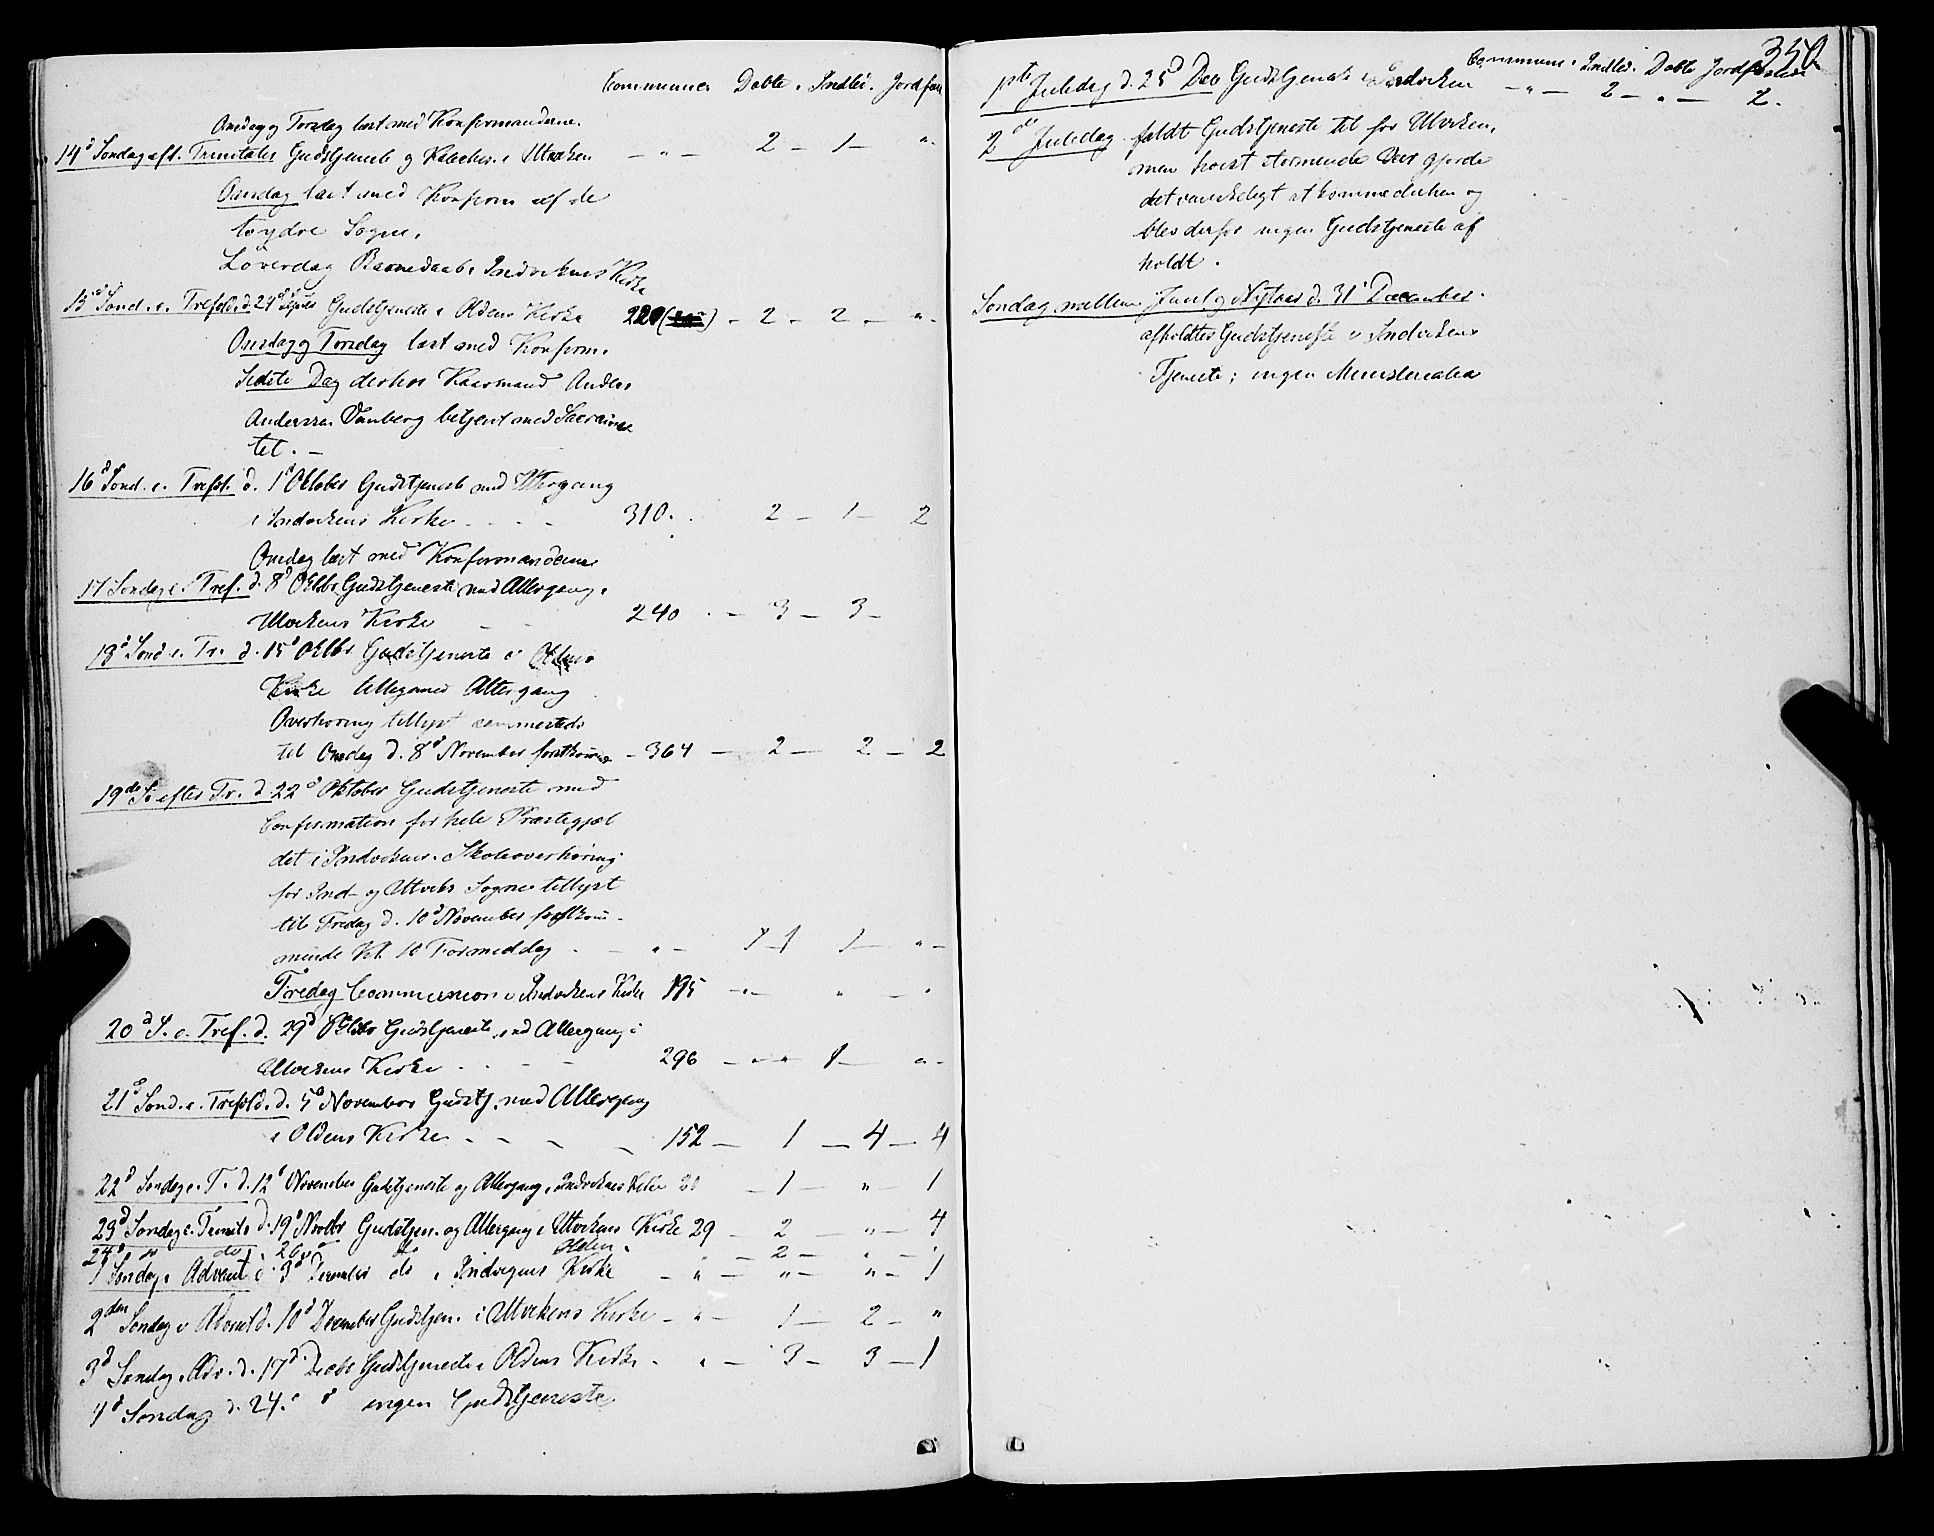 Communicer Døbte. Indled. Jordfæst
Onsdag og Torsdag læst med Konfirmanderne.
14d Søndag eft. Trinitatis Gudstjeneste og Kateches. i Utviken — „ — 2 — 1 — „
Onsdag læst med Konfirm af de
tvydre Sogne.
Løverdag Barnedaab i Indvikens Kirke
15d Sønd. e. Trefold. d. 24d Septbr Gudstjeneste i Oldens Kirke 220 — 2 — 2 — „
Onsdag og Torsdag læst med Konfirm.
Sidste Dag derhos Kaarmand Anders
Anderssen betjent med Sacramen
tet. —
16d Sønd. e. Trefst. d. 1d Oktober Gudstjeneste med Altergang
i Indvikens Kirke 310. 2 — 1 — 2
Onsdag læst med Konfirmanderne
17 Søndag e. Tref. d. 8d Oktbr Gudstjeneste med Altergang i
Utvikens Kirke 240 — 3 — 3 —
18d Sønd e. Tr. d. 15d Oktbr Gudstjeneste i Oldens
Kirke tilligemed Altergang
Overhøring tillyst sammesteds
til Onsdag d. 8d November førstkomm — 364 — 2 — 2 — 2
19de S. efter Tr. d. 22d Oktober Gudstjeneste med
Confirmation for hele Præstegjæl
det i Indviken. Skoleoverhøring
for Ind- og Utviks Sogne tillyst
til Fredag d. 10d November førstkom-
mende Kl. 10 Formiddag — „ — 1 1 — „ —
Fredag Communion i Indvikens Kirke 195 — „ — „ — „
20d S. e. Tref. d. 29d Oktbr Gudstjeneste med Altergang i
Utvikens Kirke 296 — „ — 1 — „ —
21d Sønd. e. Trefold. d. 5d November Gudstj. med Altergang
i Oldens Kirke 152 — 1 — 4 — 4
22d Søndag e. T. d. 12d November Gudstjeneste og Altergang i Indvikens Kirke 20 — 1 — „ — 1
23d Søndag e. Trinits d. 19d Novbr Gudstjen. og Altergang i Utvikens Kirke 29 — 2 — „ — 4
24d do do d. 26 do Olden „ — 2 — „ — 1
1 Søndag i Advent d. 3d December do i Indvigens Kirke — „ — „ — „ — 1
2den Søndag i Advent d. 10d December Gudstjen. i Utvikens Kirke — „ — 1 — 2 — „
3d Søndag i Adv. d. 17d Decbr Gudstjeneste i Oldens Kirke — „ — 3 — 3 — 1
4d Søndag d. 24. d ingen Gudstjeneste
350
Commune. Indled. Døbte Jordfæstede
1ste Juledag d. 25d Dec Gudstjeneste i Indviken — „ — 2 — „ — 2.
2den Juledag faldt Gudstjeneste til for Utviken,
men høist stormende Veir gjorde
det vanskeligt at komme derhen og
blev derfor ingen Gudstjeneste af
holdt.
Søndag mellem Juul og Nytaar d. 31d December
afholdtes Gudstjeneste i Indvikens
Tjeneste; ingen Ministerialia